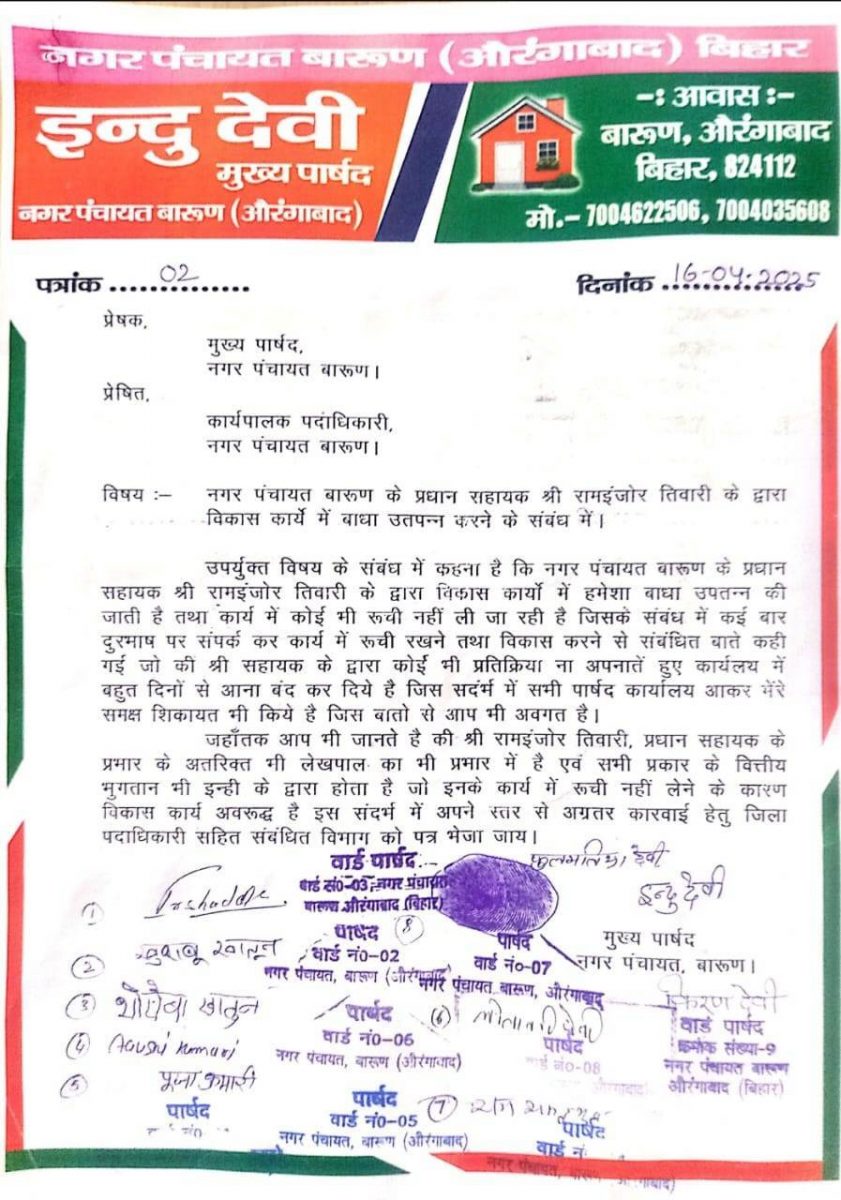 नगर पंचायत बारूण (औरंगाबाद) बिहार
इन्दु देवी
मुख्य पार्षद
नगर पंचायत बारूण (औरंगाबाद)
-: आवास :-
बारूण, औरंगाबाद
बिहार, 824112
मो.– 7004622506, 7004035608
पत्रांक ..............02
दिनांक ..............16-04-2025
प्रेषक,
मुख्य पार्षद,
नगर पंचायत बारूण।
प्रेषित,
कार्यपालक पदाधिकारी,
नगर पंचायत बारूण।
विषय :– नगर पंचायत बारूण के प्रधान सहायक श्री रामइंजोर तिवारी के द्वारा
विकास कार्ये में बाधा उतपन्न करने के संबंध में।
उपर्युक्त विषय के संबंध में कहना है कि नगर पंचायत बारूण के प्रधान
सहायक श्री रामइंजोर तिवारी के द्वारा विकास कार्यो में हमेशा बाधा उपतन्न की
जाती है तथा कार्य में कोई भी रूची नहीं ली जा रही है जिसके संबंध में कई बार
दुरभाष पर संपर्क कर कार्य में रूची रखने तथा विकास करने से संबंधित बाते कही
गई जो की श्री सहायक के द्वारा कोई भी प्रतिक्रिया ना अपनातें हुए कार्यलय में
बहुत दिनों से आना बंद कर दिये है जिस सदंर्भ में सभी पार्षद कार्यालय आकर मेंरे
समक्ष शिकायत भी किये है जिस बातो से आप भी अवगत है।
जहाँतक आप भी जानते है की श्री रामइंजोर तिवारी, प्रधान सहायक के
प्रभार के अतरिक्त भी लेखपाल का भी प्रभार में है एवं सभी प्रकार के वित्तीय
भुगतान भी इन्ही के द्वारा होता है जो इनके कार्य में रूची नहीं लेने के कारण
विकास कार्य अवरूद्ध है इस संदर्भ में अपने स्तर से अग्रतर कारवाई हेतु जिला
पदाधिकारी सहित संबंधित विभाग को पत्र भेजा जाय।
वार्ड पार्षद
वार्ड सं0-03, नगर पंचायत
बारूण औरंगाबाद (बिहार)
देवी
इन्दु देवी
मुख्य पार्षद
नगर पंचायत, बारूण।
①
② खुशबू खातून
पार्षद
वार्ड नं०-02
नगर पंचायत, बारूण (औरंगाबाद)
⑧
पार्षद
वार्ड नं०-07
नगर पंचायत बारूण, औरंगाबाद
③ खातुन
पार्षद
वार्ड नं०-06
नगर पंचायत, बारूण (औरंगाबाद)
④ Kumari
⑥ देवी
पार्षद
वार्ड नं०-08
किरण देवी
वार्ड पार्षद
क्रमांक संख्या-9
नगर पंचायत बारूण
औरंगाबाद (बिहार)
⑤ पूजा कुमारी
पार्षद
पार्षद
वार्ड नं०-05
नगर पंचायत, बारूण (औरंगाबाद)
⑦ राम
पार्षद
वार्ड
नगर पंचायत, बारूण (औरंगाबाद)